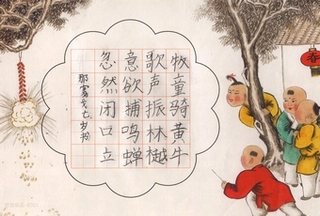 牧童骑黄牛
歌声振林樾
意欲捕鸣蝉
忽然闭口立
七岁书
春